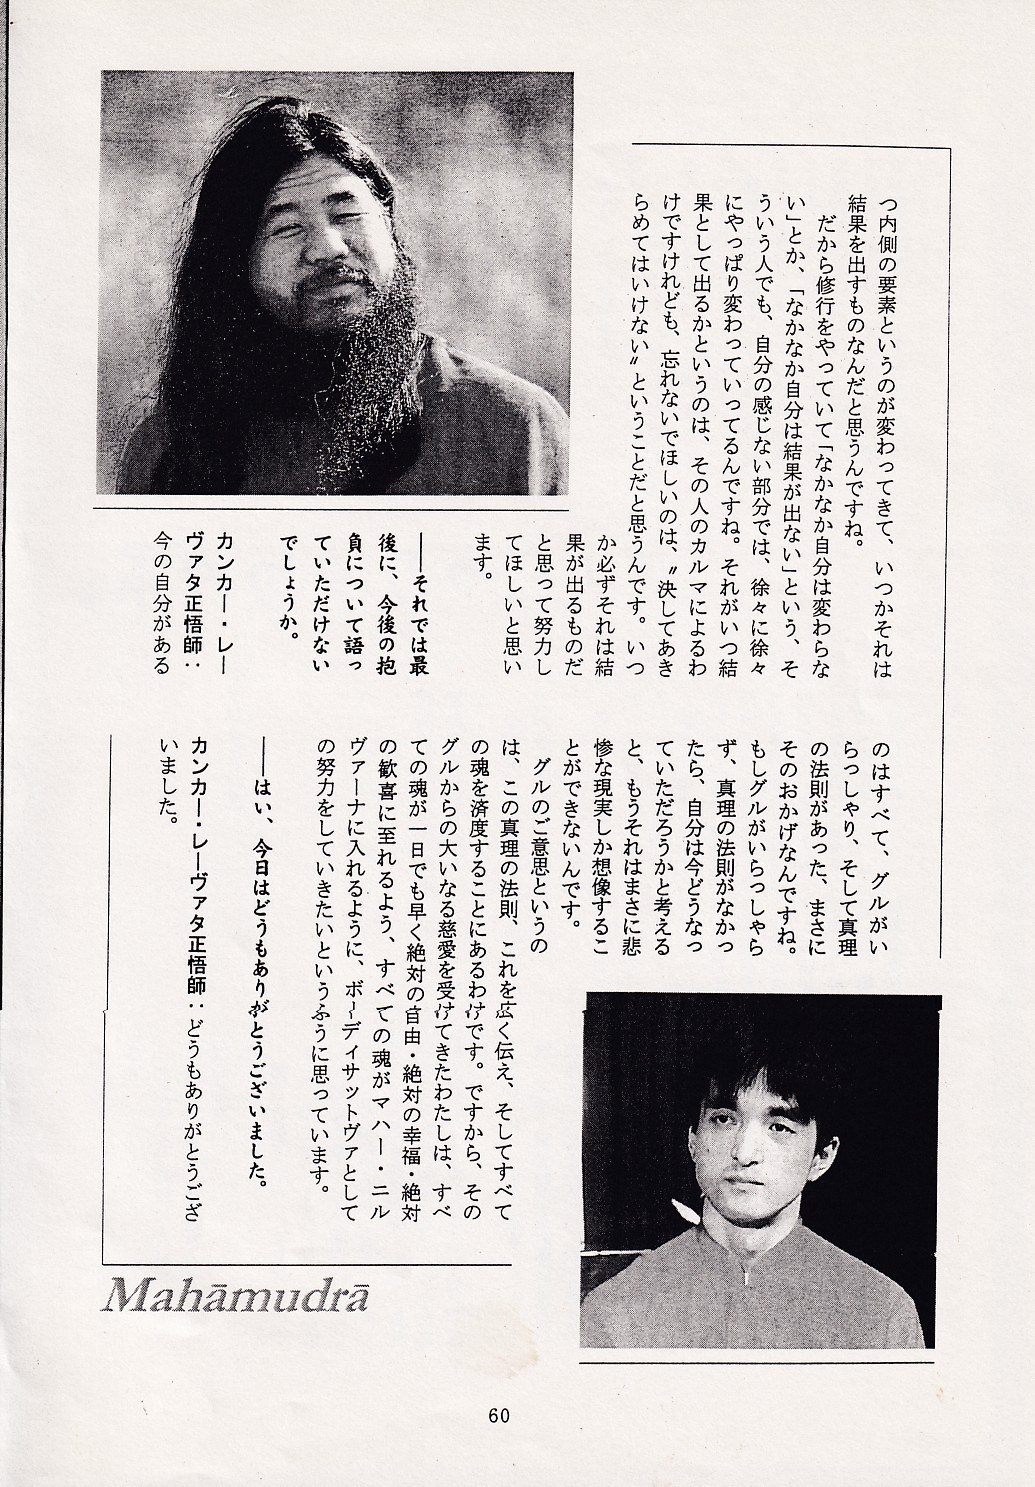 つ内側の要素というのが変わってきて、いつかそれは
結果を出すものなんだと思うんですね。
だから修行をやっていて「なかなか自分は変わらな
い」とか、「なかなか自分は結果が出ない」という、そ
ういう人でも、自分の感じない部分では、徐々に徐々
にやっぱり変わっていってるんですね。それがいつ結
果として出るかというのは、その人のカルマによるわ
けですけれども、忘れないでほしいのは、〝決してあき
らめてはいけない〟ということだと思うんです。いつ
か必ずそれは結
果が出るものだ
と思って努力し
てほしいと思い
ます。
――それでは最
後に、今後の抱
負について語っ
ていただけない
でしょうか。
カンカー・レー
ヴァタ正悟師：
今の自分がある
のはすべて、グルがい
らっしゃり、そして真理
の法則があった、まさに
そのおかげなんですね。
もしグルがいらっしゃら
ず、真理の法則がなかっ
たら、自分は今どうなっ
ていただろうかと考える
と、もうそれはまさに悲
惨な現実しか想像するこ
とができないんです。
グルのご意思というの
は、この真理の法則、これを広く伝え、そしてすべて
の魂を済度することにあるわけです。ですから、その
グルからの大いなる慈愛を受けてきたわたしは、すべ
ての魂が一日でも早く絶対の自由・絶対の幸福・絶対
の歓喜に至れるよう、すべての魂がマハー・ニル
ヴァーナに入れるように、ボーディサットヴァとして
の努力をしていきたいというふうに思っています。
――はい、今日はどうもありがとうございました。
カンカー・レーヴァタ正悟師：どうもありがとうござ
いました。
Mahāmudrā
60